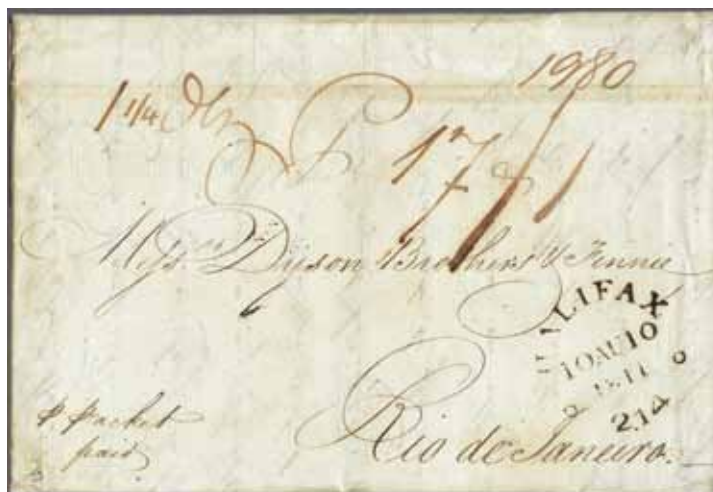 1980
1 1/4 P 17
Messrs Dyson Brothers & Finnie
HALIFAX
10 AU 10
214
Rio de Janeiro.
P packet
paid